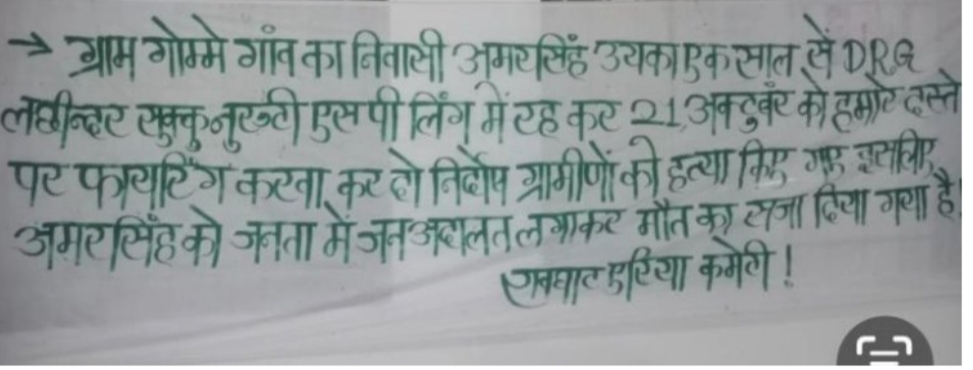 → ग्राम गोम्मे गांव का निवासी अमरसिंह उयका एक साल से DRG
लछीन्दर सुक्कु नुरुटी एस पी लिंग में रह कर 21, अक्टुबंर को हमारे दस्ते
पर फायरिंग करवा कर दो निर्दोष ग्रामीणों को हत्या किए गए इसलिए
अमरसिंह को जनता में जनअदालत लगाकर मौत का सजा दिया गया है!
रावघाट एरिया कमेटी!